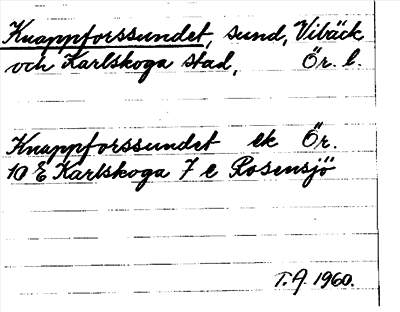 Knappforssundet, sund, Vibäck
och Karlskoga stad, Ör. l.
Knappforssundet ek Ör.
10 E Karlskoga 7 e Rosensjö
T.A. 1960.